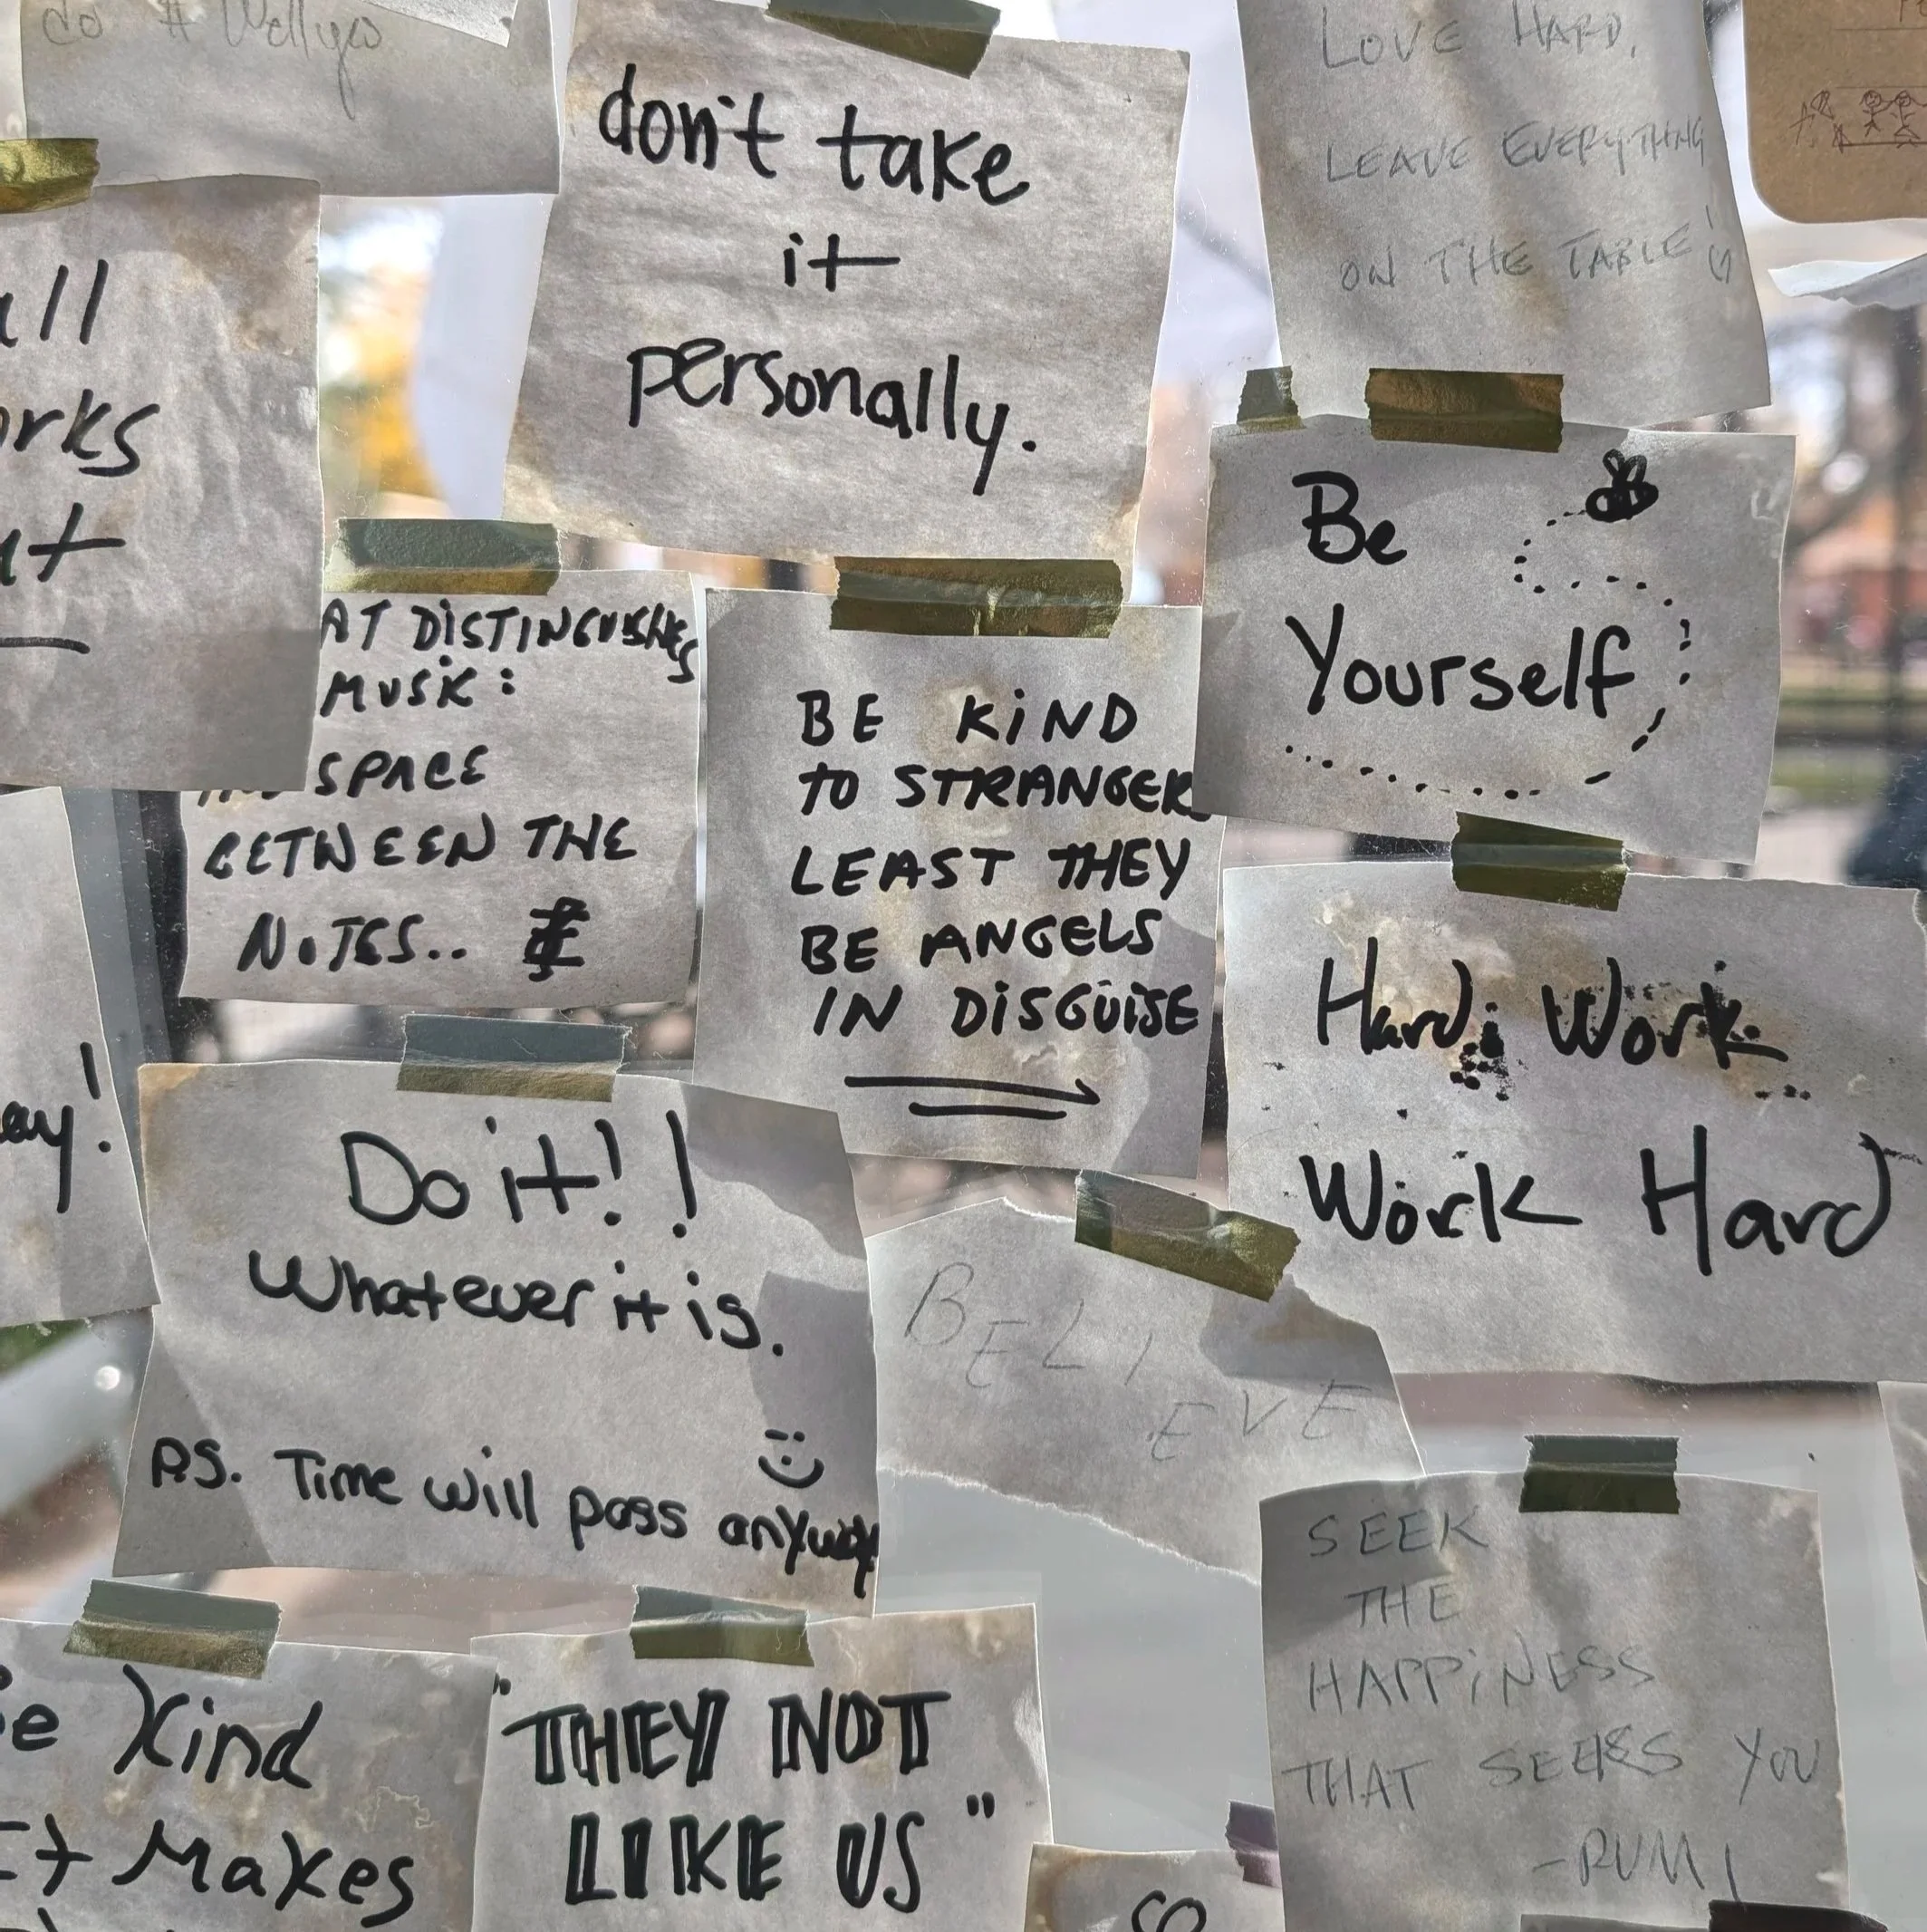 don't take
it
personally.
LOVE HARD,
LEAVE EVERYTHING
ON THE TABLE!
all
orks
ut
AT DISTINGUISHES
MUSIC:
SPACE
BETWEEN THE
NOTES..
BE KIND
TO STRANGER
LEAST THEY
BE ANGELS
IN DISGUISE
Be
Yourself
Hard Work
Work Hard
ay!
Do it!!
Whatever it is.
P.S. Time will pass anyway
BELI
EVE
SEEK
THE
HAPPINESS
THAT SEEKS YOU
-RUMI
Be Kind
It Makes
"THEY NOT
LIKE US"